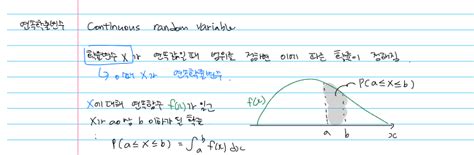 연속확률변수 Continuous random variable
확률변수 X가 연속값일 때 범위를 정하면 이에 따른 확률이 정해짐.
↳ 이때 X가 연속확률변수.
X에 대해 연속함수 f(x)가 있고
X가 a이상 b 이하가 될 확률
: P(a≤X≤b) = ∫ₐᵇ f(x) dx
f(x)
P(a≤X≤b)
a b x